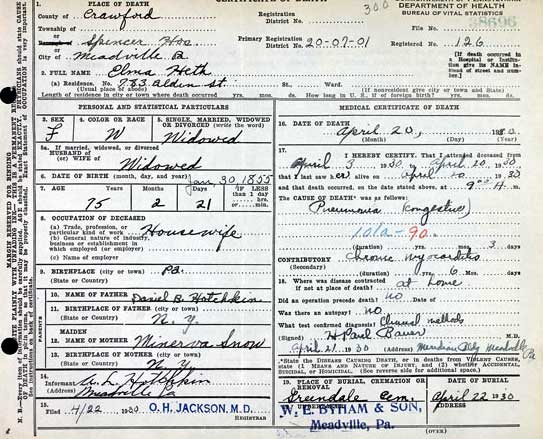 1. PLACE OF DEATH
County of Crawford
Township of
Spencer Hos
Meadville Pa
Registration District No. 300
Primary Registration District No. 20-07-01
DEPARTMENT OF HEALTH
BUREAU OF VITAL STATISTICS
38696
Registered No. 126
(If death occurred in a Hospital or Institution give its NAME instead of street and number.)
2. FULL NAME Elma Heth
(a) Residence. No. 783 Alden St St. Ward.
(Usual place of abode) (If nonresident give city or town and State)
Length of residence in city or town where death occurred yrs. mos. ds. How long in U. S., if of foreign birth? yrs. mos. ds.
PERSONAL AND STATISTICAL PARTICULARS
3. SEX
F
4. COLOR OR RACE
W
5. SINGLE, MARRIED, WIDOWED OR DIVORCED (write the word)
Widowed
5a. If married, widowed, or divorced
HUSBAND of
(or) WIFE of Widowed
6. DATE OF BIRTH (month, day, and year) Jan 30 1855
7. AGE 75 2 21
IF LESS than 1 day
hrs.
min.
8. OCCUPATION OF DECEASED
(a) Trade, profession, or particular kind of work
Housewife
(b) General nature of industry, business or establishment in which employed (or employer)
(c) Name of employer
9. BIRTHPLACE (city or town) Pa.
(State or Country)
PARENTS
10. NAME OF FATHER Daniel B. Hotchkin
11. BIRTHPLACE OF FATHER (city or town)
(State or Country) N. Y
12. MAIDEN NAME OF MOTHER Minerva Snow
13. BIRTHPLACE OF MOTHER (city or town)
(State or Country) N. Y.
14. Informant A. L. Hotchkin
Meadville Pa
15. 4/22 1930 O. H. JACKSON, M. D.
REGISTRAR
MEDICAL CERTIFICATE OF DEATH
16. DATE OF DEATH
April 20, 1930
(Month) (Day) (Year)
17. I HEREBY CERTIFY, That I attended deceased from
April 5 1930 to April 20 1930
that I last saw her alive on April 20 1930
and that death occurred, on the date stated above, at 9 A M.
The CAUSE OF DEATH* was as follows:
Pneumonia (congestive)
101a-90
(duration) yrs. mos. 3 ds.
CONTRIBUTORY Chronic myocarditis
(Secondary)
(duration) yrs. 6 mos. ds.
18. Where was disease contracted
if not at place of death? at home
Did an operation precede death? no Date of
Was there an autopsy? no
What test confirmed diagnosis? Clinical methods
(Signed) H Paul Bauer M.D.
April 21 1930 Meadville Pa
*State the DISEASE CAUSING DEATH, or in deaths from VIOLENT CAUSES, state (1) MEANS AND NATURE OF INJURY, and (2) whether ACCIDENTAL, SUICIDAL, or HOMICIDAL. (See reverse side for additional space.)
19. PLACE OF BURIAL, CREMATION OR REMOVAL
Greendale Cem.
DATE OF BURIAL
April 22 1930
W. E. PATHAM & SON,
Meadville, Pa.